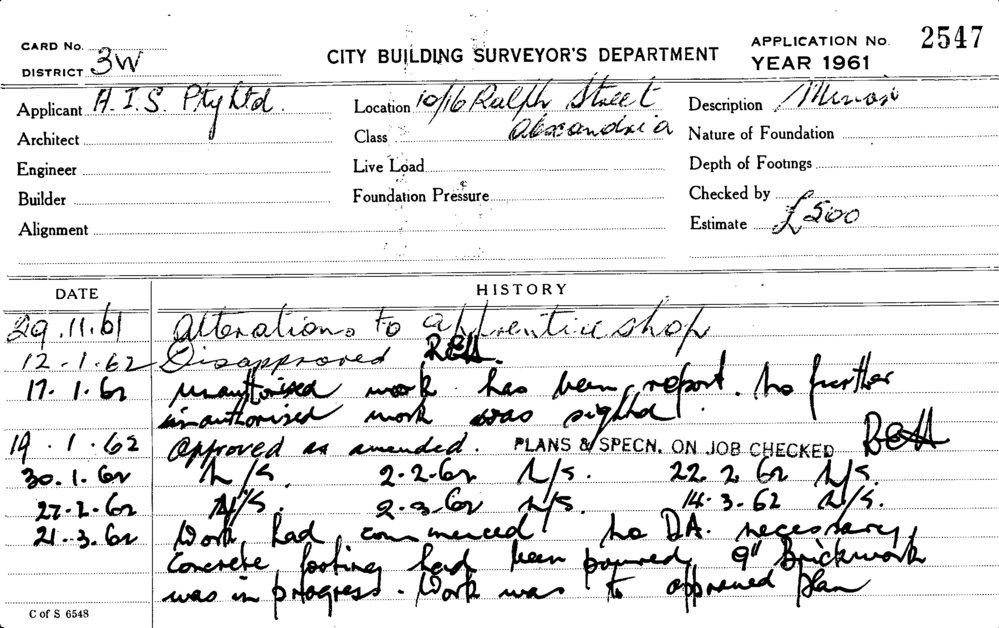 CARD No.
DISTRICT 3W
CITY BUILDING SURVEYOR'S DEPARTMENT
APPLICATION No. 2547
YEAR 1961
Applicant A.I.S. Pty Ltd.
Location 10/16 Ralph Street
Alexandria
Description Minor
Architect
Class
Nature of Foundation
Engineer
Live Load
Depth of Footings
Builder
Foundation Pressure
Checked by
Alignment
Estimate £500
DATE HISTORY
29.11.61 Alterations to apprentice shop
12.1.62 Disapproved REH.
17.1.62 unauthorised work has been report. No further
unauthorised work was sighted.
19.1.62 Approved as amended. PLANS & SPECN. ON JOB CHECKED REH
30.1.62 N/S. 2.2.62 N/S. 22.2.62 N/S.
27.2.62 N/S. 2.3.62 N/S. 14.3.62 N/S.
21.3.62 Work had commenced no DA. necessary,
Concrete footing had been poured, 9" Brickwork
was in progress. Work was to approved plan
C of S 6548